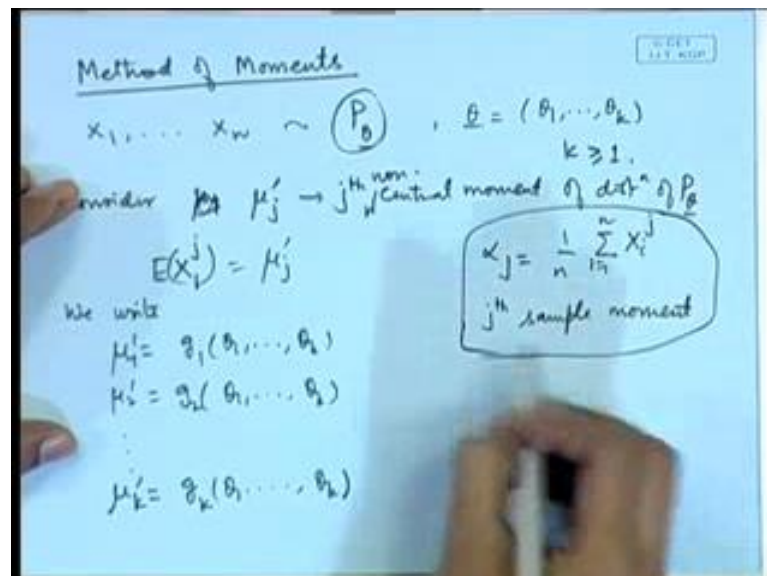 Method of Moments
I.I.T. KGP
X₁, ... Xₙ ~ P_θ , θ = (θ₁, ..., θₖ)
k ≥ 1.
μⱼ' → jᵗʰ non-central moment of distⁿ of P_θ
E(X₁ʲ) = μⱼ'
αⱼ = 1/n Σᵢ₌₁ⁿ Xᵢʲ
jᵗʰ sample moment
We write
μ₁' = g₁(θ₁, ..., θₖ)
μ₂' = g₂(θ₁, ..., θₖ)
⋮
μₖ' = gₖ(θ₁, ..., θₖ)